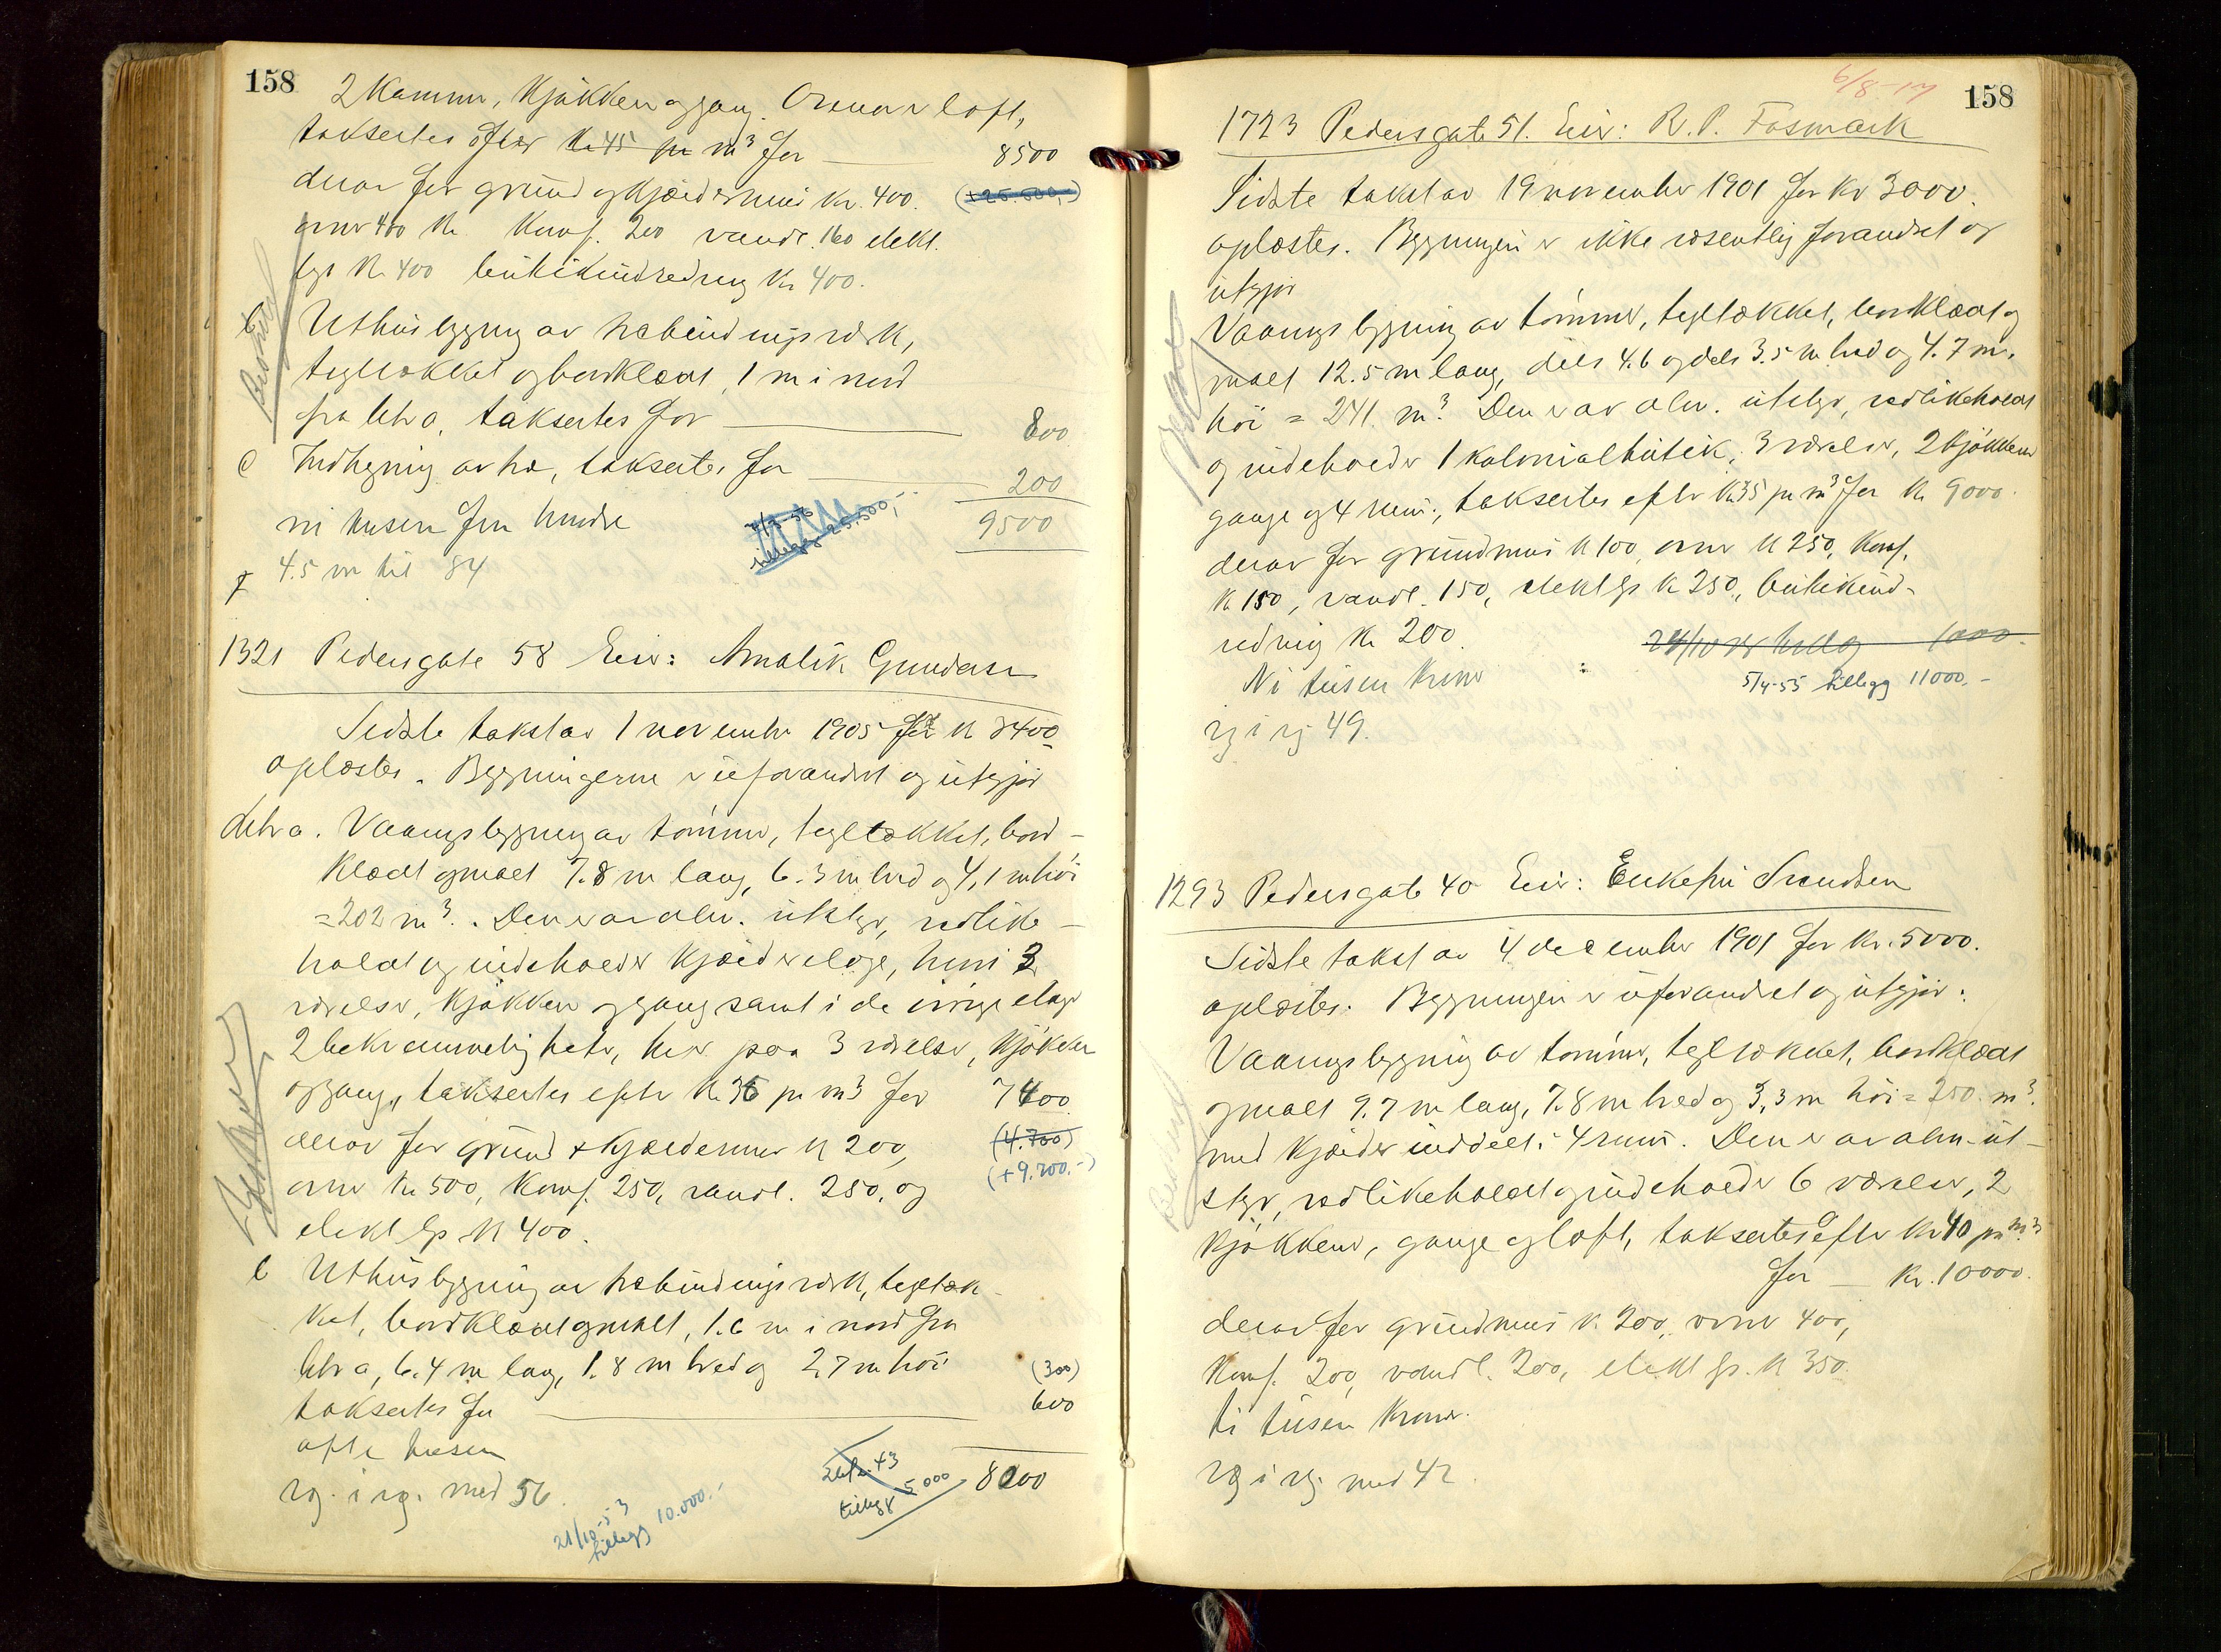 158
2 Kammer, Kjøkken og gang. Ovenover loft,
taksertes efter Kr 45 pr m³ for — 8500
derav for grund og Kjældermur Kr. 400. (+25.500,-)
ovner 400 Kr Komf. 200 vandl. 160 elekt.
lys Kr 400 butikindredning Kr 400.
b Uthusbygning av trebindingsverk,
tegltækket og bordklædt, 1 m i nord
fra litr a, taksertes for — 800
c Indhegning av træ, taksertes for — 200
ni tusen fem hundre 9500
7/3-56
tillegg 25.500,-
4.5 m til 84
1321 Pedersgate 58 Eier: Amalie Gundersen
Sidste takst av 1 november 1905 for Kr 3400
oplæstes. Bygningerne er uforandret og utgjør
Litr a. Vaaningsbygning av tømmer, tegltækket, bord-
klædt og malt 7.8 m lang, 6.3 m bred og 4,1 m høi
= 202 m³. Den er av alm. utstyr, vedlike-
holdt og indeholder Kjælderetage, hvori 3
værelser, Kjøkken og gang samt i de øvrige etager
2 bekvemmeligheter, hver paa 3 værelser, Kjøkken
og gang, taksertes efter Kr 36 pr m³ for 7400
derav for grund + Kjældermur Kr 200, (4.700)
ovner Kr 500, Komf. 250, vandl. 250, og (+9.200.-)
elekt lys Kr 400.
b Uthusbygning av trebindingsverk, tegltæk-
ket, bordklædt og malt, 1.6 m i nord fra
litr a, 6.4 m lang, 1.8 m bred og 2,7 m høi (300)
taksertes for — 600
otte tusen
8000
43
tillegg 5000
vg. i vg. med 56.
21/10-53
tillegg 10.000.-
6/8-17
158
1723 Pedersgate 51. Eier: R. P. Fosmark
Sidste takst av 19 november 1901 for Kr 3000.
oplæstes. Bygningen er ikke væsentlig forandret og
utgjør
Vaaningsbygning av tømmer, tegltækket, bordklædt og
malt 12.5 m lang, dels 4.6 og dels 3.5 m bred og 4.7 m.
høi = 241 m³. Den er av alm. utstyr, vedlikeholdt
og indeholder 1 kolonialbutik, 3 værelser, 2 kjøkkener
gange og 4 rum, taksertes efter Kr 35 pr m³ for Kr 9000.
derav for grundmur Kr 100, ovner Kr 250, Komf.
Kr 150, vandl. 150, elekt lys Kr 250, butikind-
redning Kr 200. 24/10 tillæg 1000.
Ni tusen Kroner : 5/4-55 tillegg 11000.-
vg i vg 49.
1293 Pedersgate 40 Eier: Enkefru Svendsen
Sidste takst av 4 december 1901 for Kr. 5000.
oplæstes. Bygningen er uforandret og utgjør:
Vaaningsbygning av tømmer, tegltækket, bordklædt
og malt 9.7 m lang, 7.8 m bred og 3,3 m høi = 250 m³.
med Kjælder inddelt i 4 rum. Den er av alm. ut-
styr, vedlikeholdt og indeholder 6 værelser, 2
Kjøkkener, gange og loft, taksertes efter Kr 40 pr m³
for — Kr. 10000.
derav for grundmur Kr 200, ovner 400,
Komf. 200, vandl. 200, elekt lys. Kr 350.
ti tusen Kroner.
vg i vg. med 42.